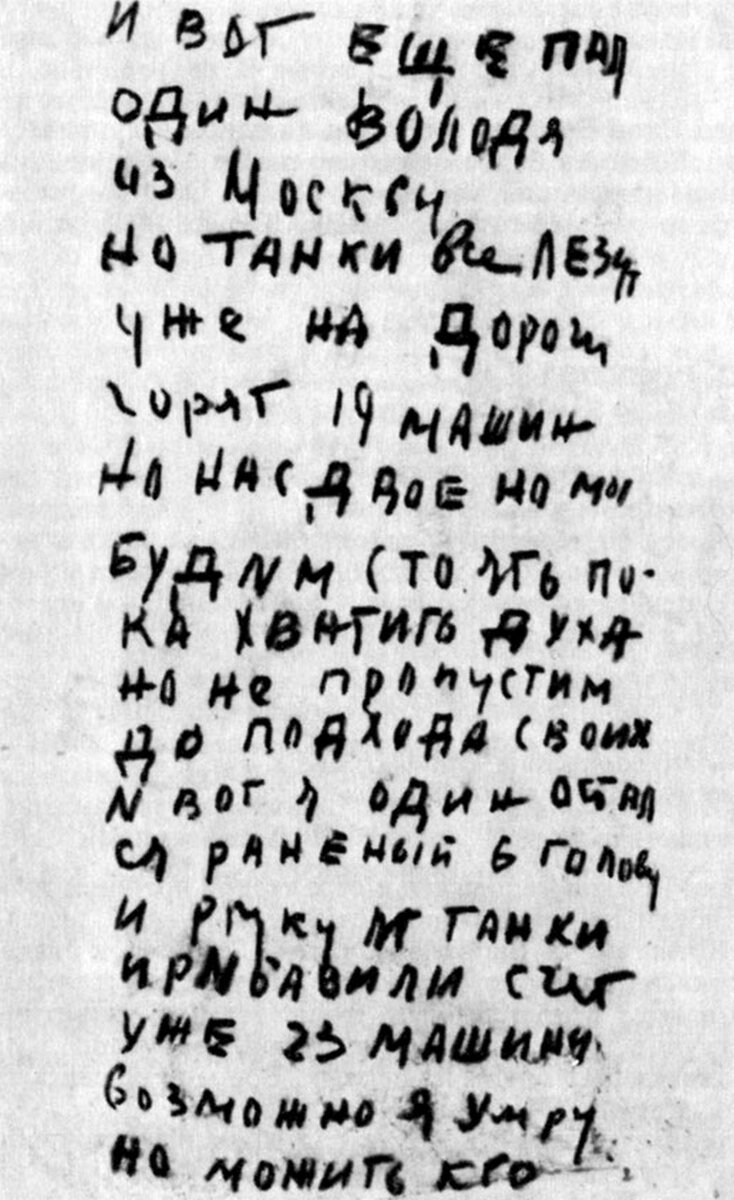 И ВОТ ЕЩЕ ПАЛ
ОДИН ВОЛОДЯ
ИЗ МОСКВЫ
НО ТАНКИ все ЛЕЗУТ
УЖЕ НА ДОРОГИ
ГОРЯТ 19 МАШИН
НО НАС ДВОЕ НО МЫ
БУДИМ СТОЯТЬ ПО-
КА ХВАТИТЬ ДУХА
НО НЕ ПРОПУСТИМ
ДО ПОДХОДА СВОИХ
И ВОТ Я ОДИН ОСТАЛ
СЯ РАНЕНЫЙ В ГОЛОВУ
И РУКУ И ТАНКИ
ПРИБАВИЛИ СЧЕТ
УЖЕ 23 МАШИНЫ
ВОЗМОЖНО Я УМРУ
НО МОЖИТЬ КТО